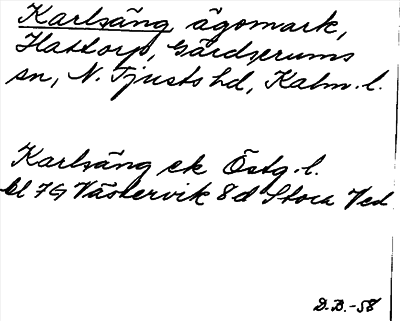 Karlsäng, ägomark,
Hattorp, Gärdserums
sn, N. Tjusts hd, Kalm. l.
Karlsäng ek Östg. l.
bl 7G Västervik 8d Stora Ved
D.B.-58